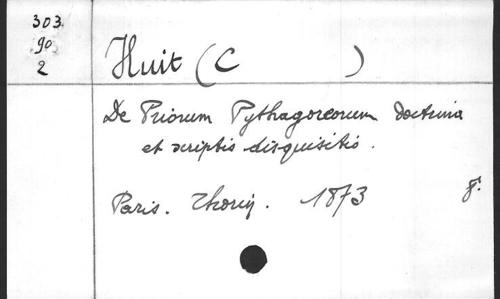 303.
90
2
Huit (C )
De Priorum Pythagoreorum doctrina
et scriptis disquisitio.
Paris. Thorin. 1873 8.